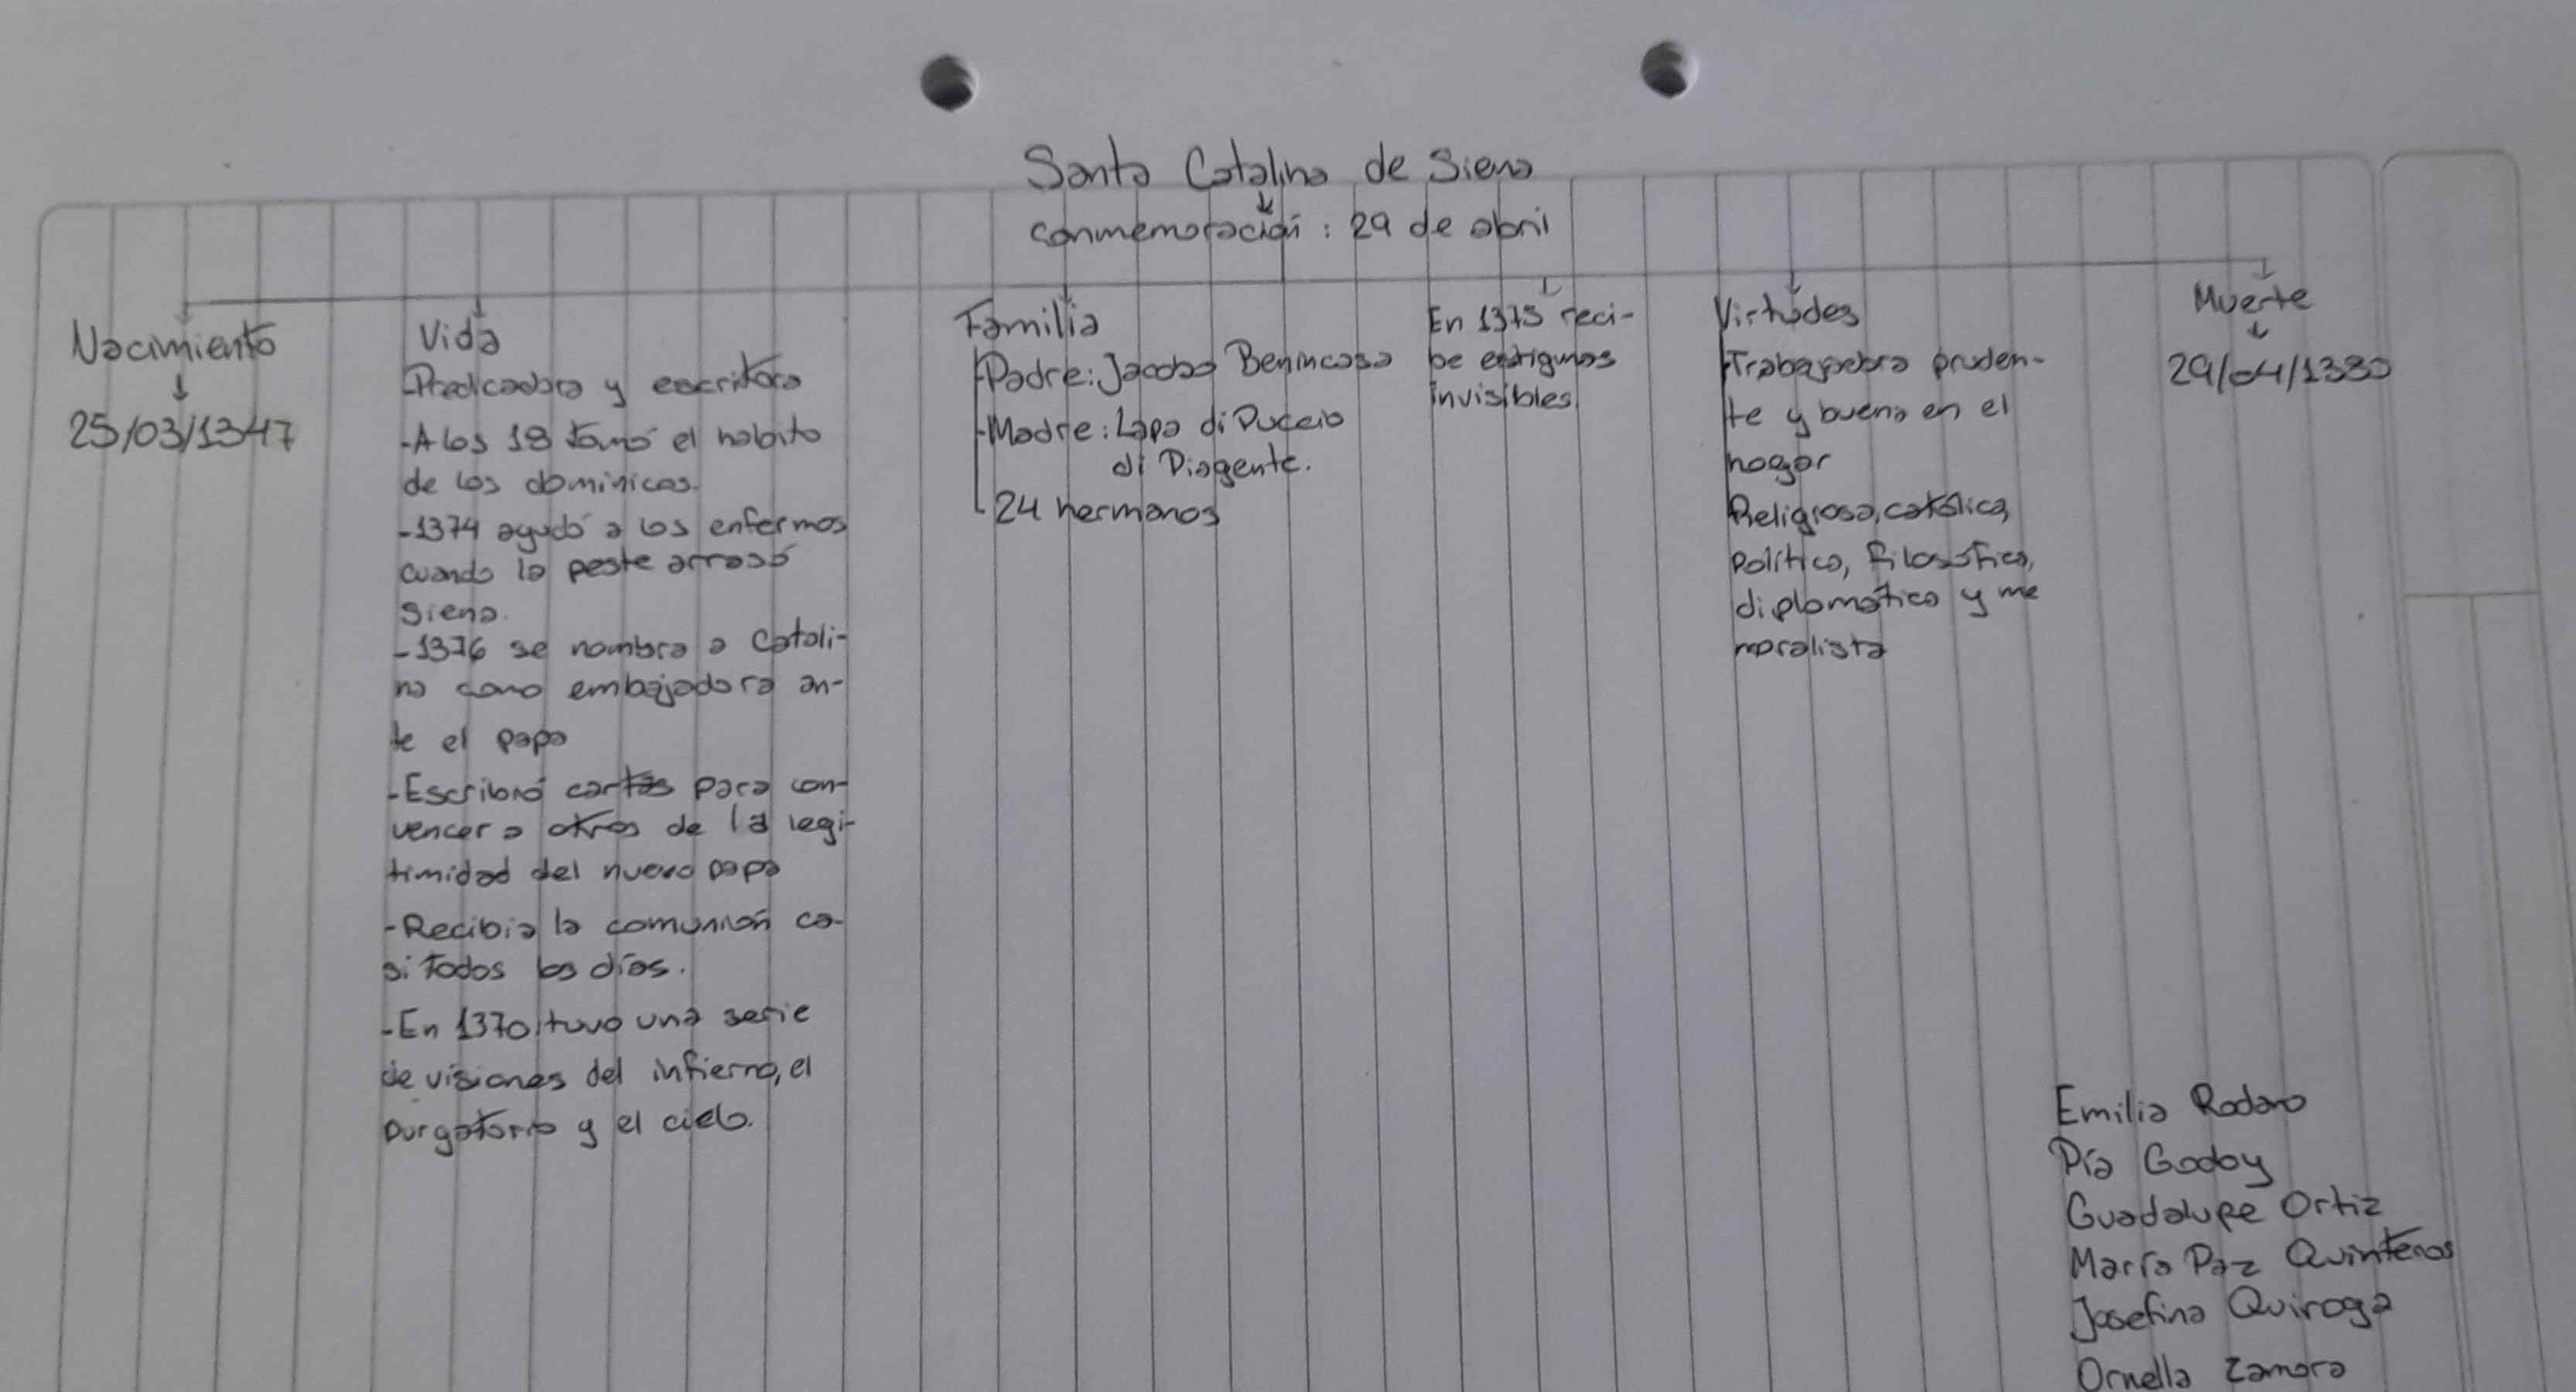 Santa Catalina de Siena
conmemoración: 29 de abril
Nacimiento
25/03/1347
Vida
-Predicadora y escritora
-A los 18 tomó el habito
de los dominicos.
-1374 ayudó a los enfermos
cuando la peste arrasó
Siena.
-1376 se nombra a Catali-
na como embajadora an-
te el papa
-Escribió cartas para con-
vencer a otros de la legi-
timidad del nuevo papa
-Recibia la comunión ca-
si todos los días.
-En 1370 tuvo una serie
de visiones del infierno, el
purgatorio y el cielo.
Familia
-Padre: Jacobo Benincasa
-Madre: Lapa di Puccio
di Piagente.
-24 hermanos
En 1375 reci-
be estigmas
invisibles.
Virtudes
-Trabajadora pruden-
te y buena en el
hogar
Religiosa, católica,
política, filosófica,
diplomática y me
moralista
Muerte
29/04/1380
Emilia Rodaro
Pía Godoy
Guadalupe Ortiz
María Paz Quinteros
Josefina Quiroga
Ornella Zamora